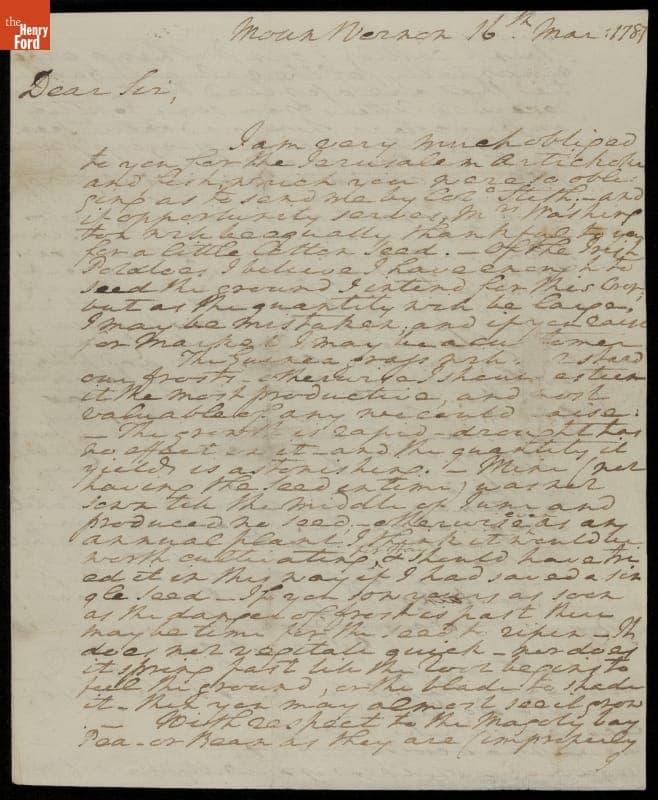 the
Henry
Ford
Mount Vernon 16th. Mar: 1787
Dear Sir,
I am very much obliged
to you for the Jerusalem Artichoke
and fish, which you were so obli-
ging as to send me by Colo. Stith, - and
if opportunity serves, Mrs. Washing
ton will be equally thankful to you
for a little Cotton Seed. - Of the Irish
Potatoe, I believe I have enough to
seed the ground I intend for this Crop,
but as the quantity will be large,
I may be mistaken, and if you raise
for Market I may be a customer
The Guinea grass will stand
our frosts - otherwise I should esteem
it the most productive, and most
valuable of any we could raise:
- The growth is rapid - drought has
no effect on it - and the quantity it
yields is astonishing. - Mine (not
having the seed in time) was not
sown till the middle of June and
produced no seed, - otherwise, as an
annual plant, I think it would be
worth cultivating, & should have tri
ed it in this way if I had saved a sin
gle seed - If you sow yours as soon
as the danger of frost is past there
may be time for the seed to ripen - It
does not vegitate quick - nor does
it spring fast till the root begins to
feel the ground, or the blade to shade
it - then you may almost see it grow
- With respect to the Magoty bay
Pea - or Bean as they are (improperly